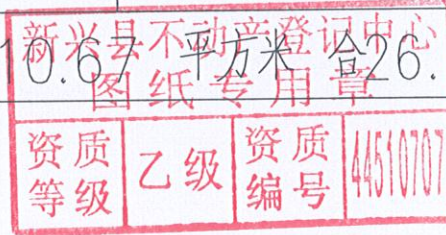 新兴县不动产登记中心
10.67 平方米 合26.
图纸专用章
资质等级 乙级 资质编号 44510707